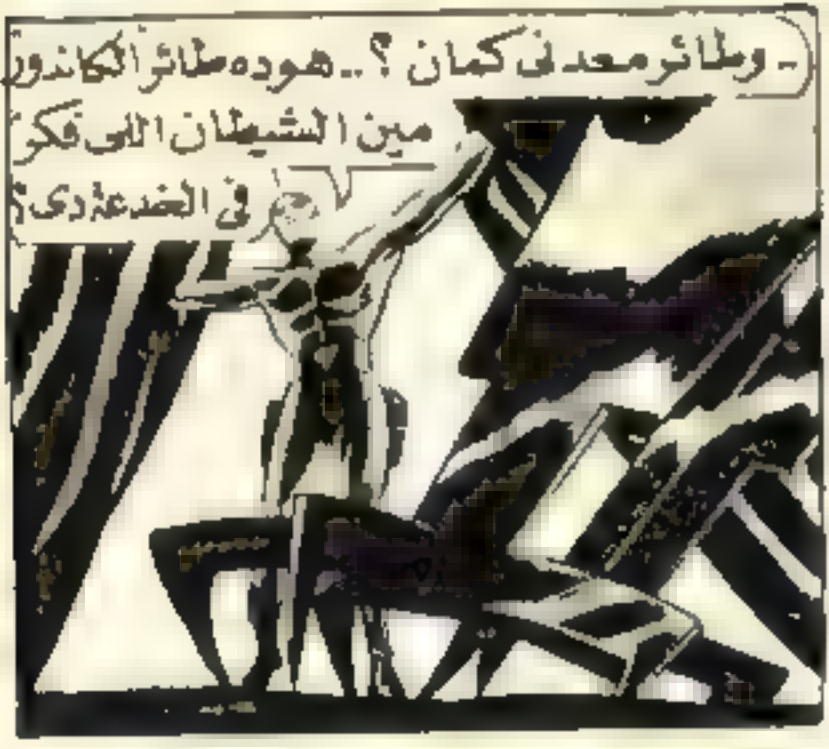 .. وطائر معدنى كمان ؟.. هو ده طائر الكاندور
مين الشيطان اللى فكر
فى الخدعة دى ؟